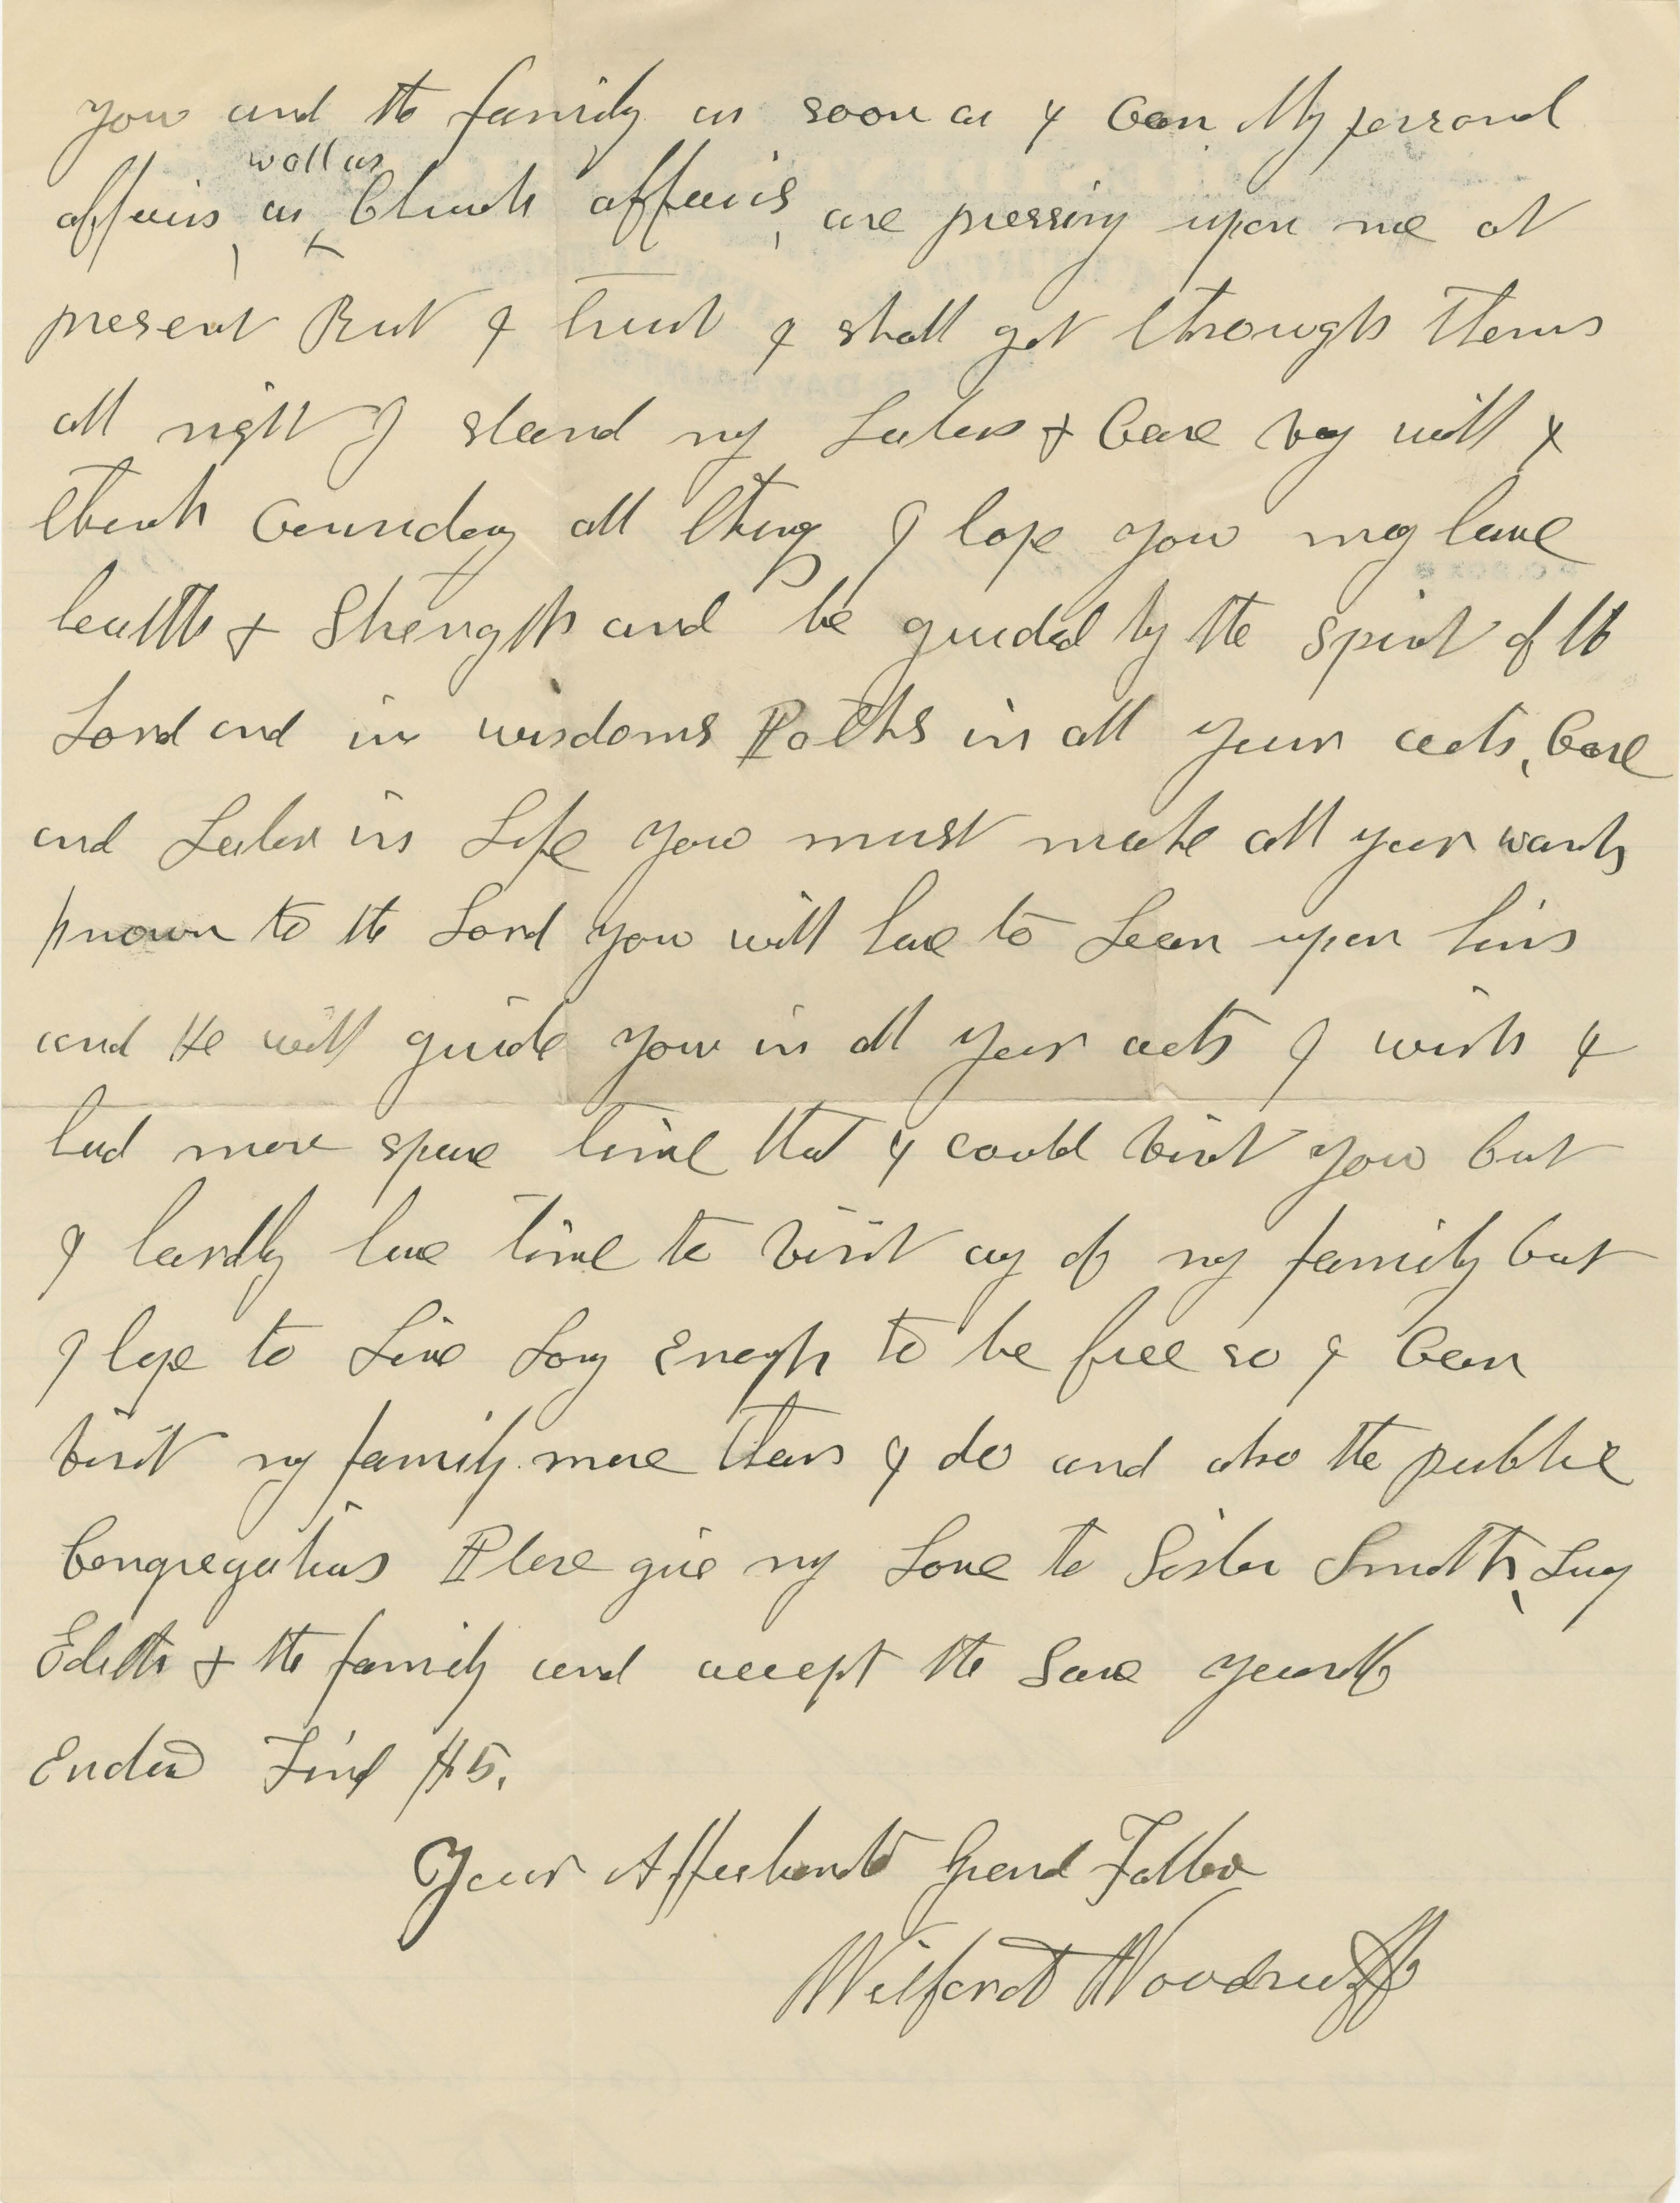 you and the family as soon as I Can. My personal
well as
affairs, as Church affairs, are pressing upon me at
present But I trust I shall get through them
all right I stand my Labor & Care vary well I
think Considering all things I hope you may have
health & Strength and be guided by the spirit of the
Lord and in wisdoms Paths in all your acts, Care
and Labor in Life you must make all your wants
known to the Lord you will have to Lean upon him
and He will guide you in all your acts I wish I
had more spare time that I could visit you but
I hardly have time to visit any of my family but
I hope to Live Long Enough to be free so I Can
visit my family more than I do and also the public
Congregations Please give my Love to Sister Smith, Lucy
Edith & the family and accept the Same yourself
Find $5.
Your Affectionate Grand Father
Wilford Woodruff